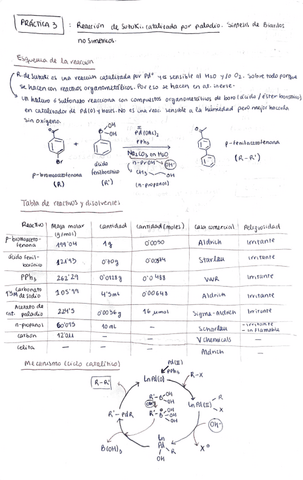 PRÁCTICA 3 : Reacción de Suzuki, catalizada por paladio. Síntesis de Biarilos
no simétricos.
Esquema de la reacción
R. de Suzuki es una reacción catalizada por Pd° y es sensible al H2O y/o O2. Sobre todo porque
se hacen con reactivos organometálicos. Por eso se hacen en at. inerte.
Un haluro o sulfonato reacciona con compuestos organometálicos de boro (ácido / éster borónico)
en catalizador de Pd(0) y base. No es una reac. sensible a la humedad pero mejor hacerla
sin oxígeno.
Pd(OAc)2
PPh3
Na2CO3 en H2O
n-PrOH
OH
CH3
(n-propanol)
Br
p-bromoacetofenona
(R)
HO OH
B
ácido
fenilborónico
(R')
p-fenilacetofenona
(R-R')
Tabla de reactivos y disolventes
Reactivo Masa molar (g/mol) Cantidad Cantidad (moles) Casa comercial Peligrosidad
p-bromoacetofenona 199'04 1g 0'0050 Aldrich Irritante
ácido fenilborónico 121'93 0'70g Irritante
PPh3 262'29 VWR Irritante
Carbonato de sodio 105'99 0'00648 Aldrich Irritante
Acetato de paladio 224'5 0'0036g 16 µmol Sigma-Aldrich Irritante
n-propanol 60'095 10 mL — Scharlau - irritante - inflamable
carbón 12'011 — — V Chemicals —
celita — — — Aldrich —
Mecanismo (ciclo catalítico)
Pd(II)
PPh3
LnPd(0)
R-X
R-R'
LnPd(II)
R
X
R'-B
OH
OH
OH-
R'-PdR
Ln
Pd
R
OH
X-
B(OH)3